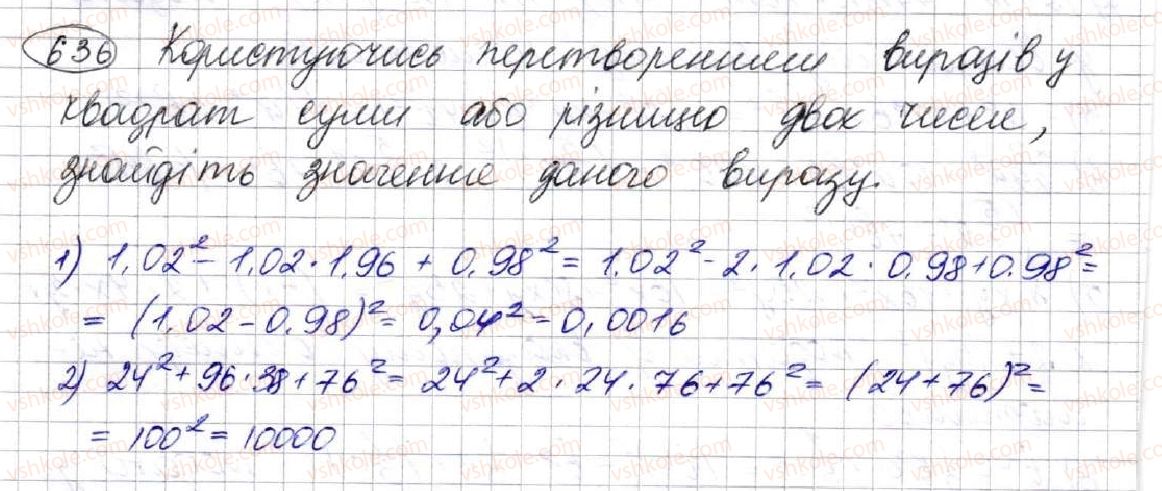 636 Користуючись перетворенням виразів у
квадрат суми або різницю двох чисел,
знайдіть значення даного виразу.
1) 1,02² - 1,02 · 1,96 + 0,98² = 1,02² - 2 · 1,02 · 0,98 + 0,98² =
= (1,02 - 0,98)² = 0,04² = 0,0016
2) 24² + 96 · 38 + 76² = 24² + 2 · 24 · 76 + 76² = (24 + 76)² =
= 100² = 10000